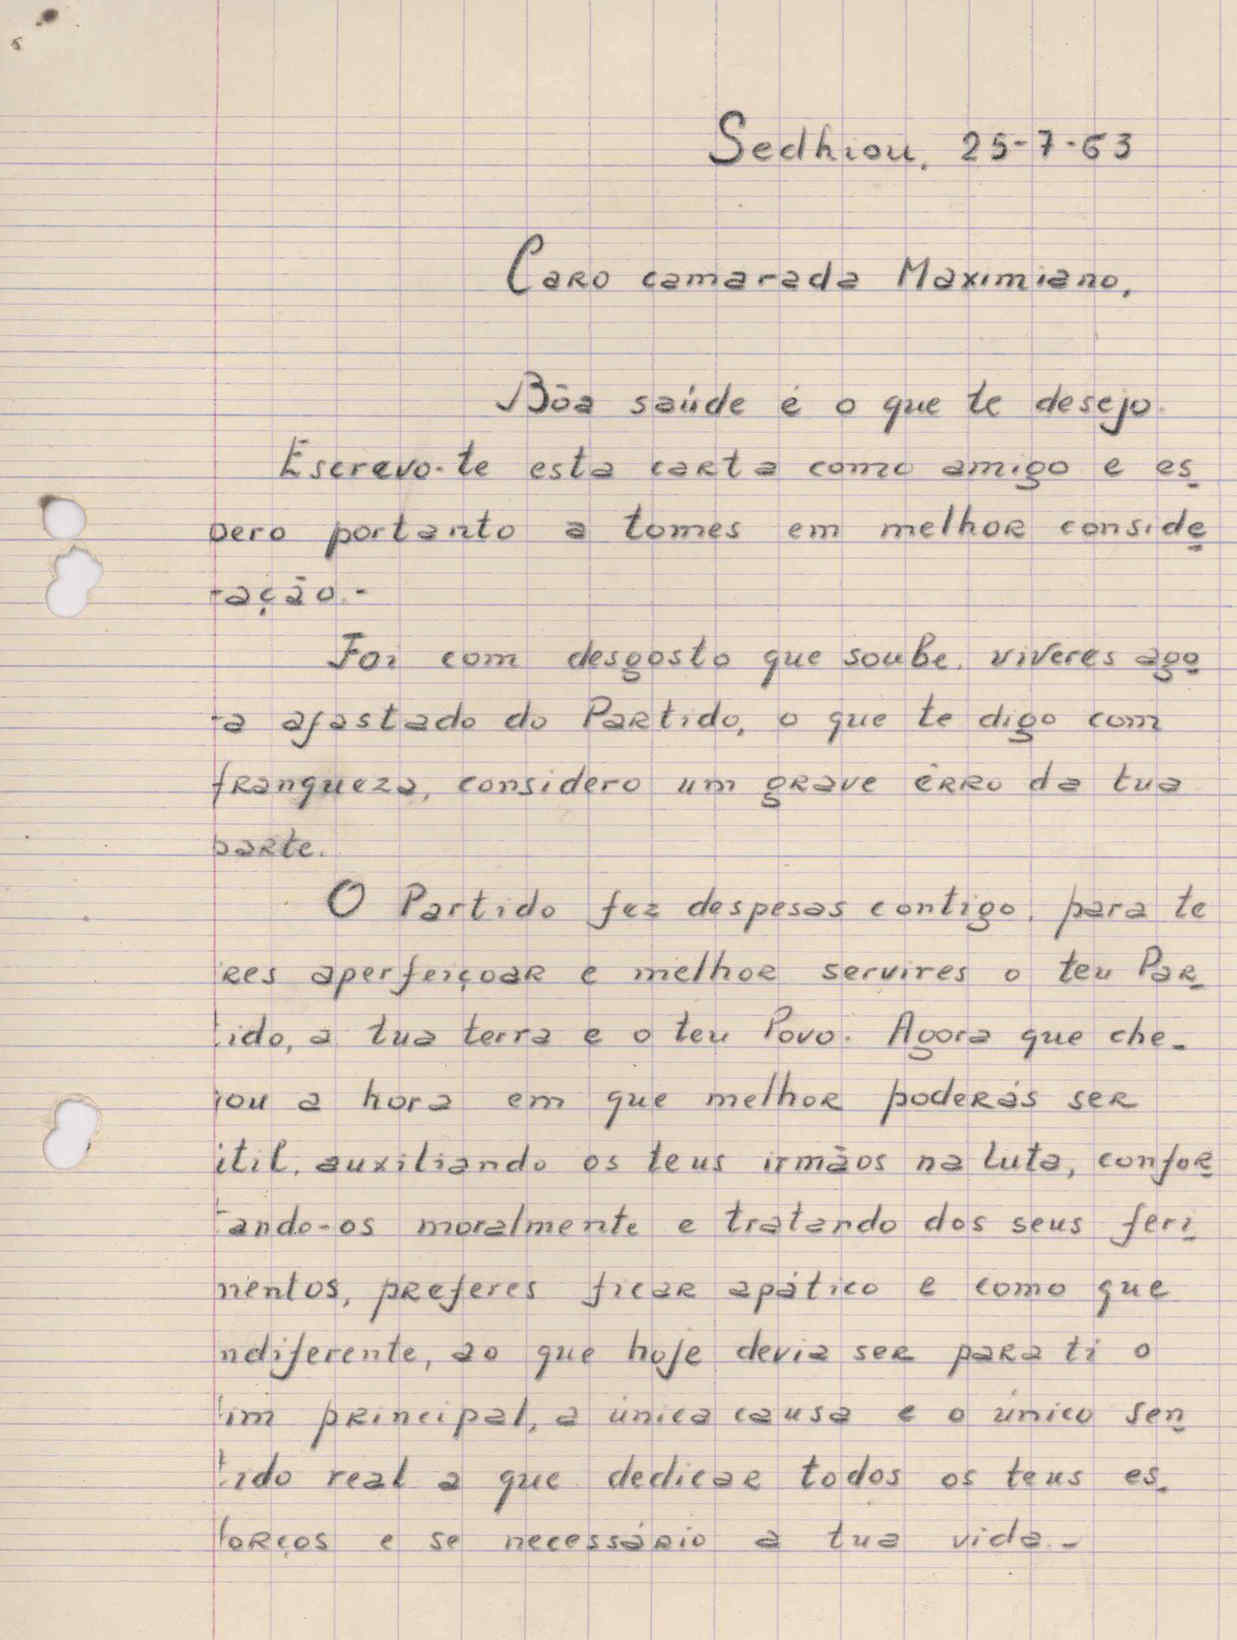 Sedhiou, 25-7-63
Caro camarada Maximiano,
Bôa saúde é o que te desejo.
Escrevo-te esta carta como amigo e es-
pero portanto a tomes em melhor conside-
ração.-
Foi com desgosto que soube, viveres ago-
ra afastado do Partido, o que te digo com
franqueza, considero um grave êrro da tua
parte.
O Partido fez despesas contigo, para te
res aperfeiçoar e melhor servires o teu Par-
tido, a tua terra e o teu Povo. Agora que che-
gou a hora em que melhor poderás ser
útil, auxiliando os teus irmãos na luta, confor-
tando-os moralmente e tratando dos seus feri-
mentos, preferes ficar apático e como que
indiferente, ao que hoje devia ser para ti o
fim principal, a única causa e o único sen-
tido real a que dedicar todos os teus es-
forços e se necessário a tua vida.-